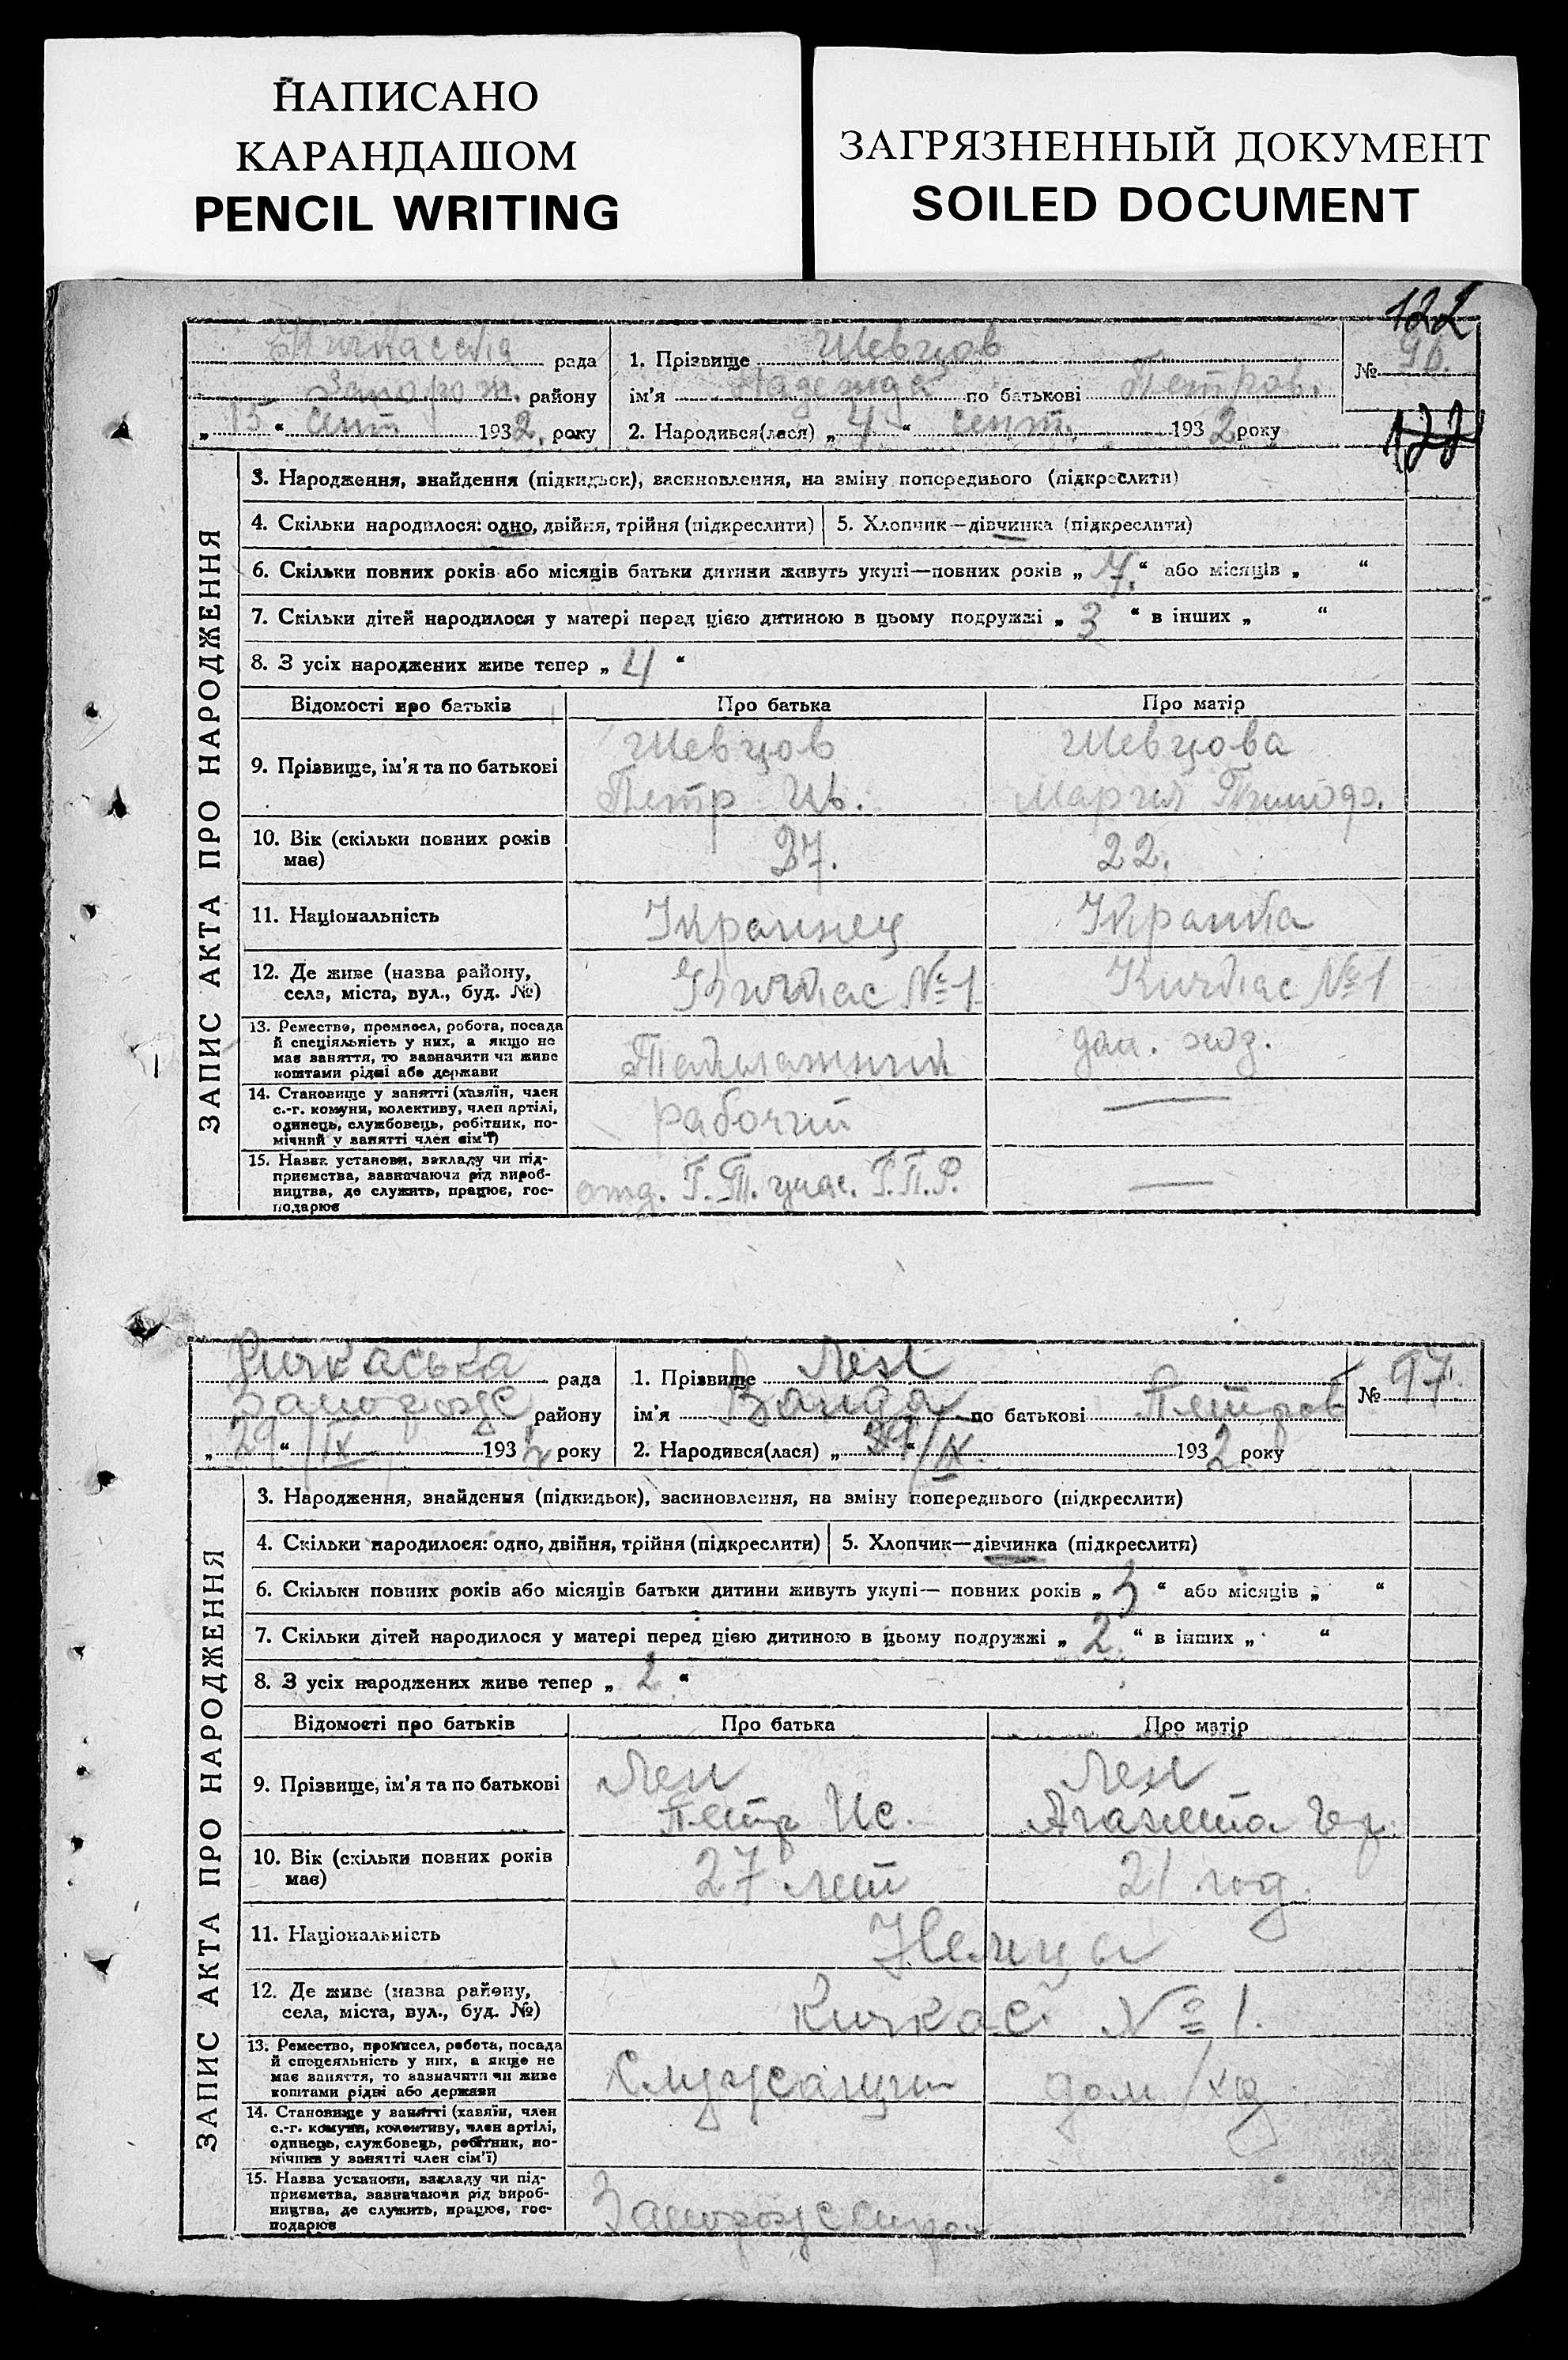 НАПИСАНО
КАРАНДАШОМ
PENCIL WRITING
ЗАГРЯЗНЕННЫЙ ДОКУМЕНТ
SOILED DOCUMENT
122
рада
Запорож. району
„ 15 “ Сент 1932, року
1. Прізвище Шевцов
ім'я Надежда по батькові Петров.
2. Народився(лася) „ 4 “ сент. 1932 року
№ 96.
122
ЗАПИС АКТА ПРО НАРОДЖЕННЯ
3. Народження, знайдення (підкидьок), засиновлення, на зміну попереднього (підкреслити)
4. Скільки народилося: одно, двійня, трійня (підкреслити) 5. Хлопчик—дівчинка (підкреслити)
6. Скільки повних років або місяців батьки дитини живуть укупі—повних років „ 7. “ або місяців „ “
7. Скільки дітей народилося у матері перед цією дитиною в цьому подружжі „ 3 “ в інших „ “
8. З усіх народжених живе тепер „ 4 “
Відомості про батьків Про батька Про матір
9. Прізвище, ім'я та по батькові
Шевцов
Петр Ив.
Шевцова
Мария Тимофе.
10. Вік (скільки повних років
має)
27.
22.
11. Національність
Украинец
12. Де живе (назва району,
села, міста, вул., буд. №)
Кичкас №1
Кичкас №1
13. Ремество, промисел, робота, посада
й спеціяльність у них, а якщо не
має заняття, то зазначити чи живе
коштами рідні або держави
дом. хоз.
14. Становище у занятті (хазяїн, член
с.-г. комуни, колективу, член артілі,
одинець, службовець, робітник, по-
мічний у занятті член сім'ї)
рабочий
15. Назва установи, закладу чи під-
приємства, зазначаючи рід вироб-
ництва, де служить, працює, гос-
подарює
Г.П.Р.
Кичкаська рада
Запорожс району
„ 29 “ /IX 1932 року
1. Прізвище
ім'я Ванда по батькові Петров
2. Народився(лася) „ /IX 1932 року
№ 97.
ЗАПИС АКТА ПРО НАРОДЖЕННЯ
3. Народження, знайдення (підкидьок), засиновлення, на зміну попереднього (підкреслити)
4. Скільки народилося: одно, двійня, трійня (підкреслити) 5. Хлопчик—дівчинка (підкреслити)
6. Скільки повних років або місяців батьки дитини живуть укупі— повних років „ 3 “ або місяців „ “
7. Скільки дітей народилося у матері перед цією дитиною в цьому подружжі „ 2 “ в інших „ “
8. З усіх народжених живе тепер „ 2 “
Відомості про батьків Про батька Про матір
9. Прізвище, ім'я та по батькові
Лен
Петр Ис.
Лен
10. Вік (скільки повних років
має)
27 лет
21 год.
11. Національність
Немцы
12. Де живе (назва району,
села, міста, вул., буд. №)
Кичкас №1.
13. Ремество, промисел, робота, посада
й спецеяльність у них, а якще не
має заняття, то зазначити чи живе
коштами рідні або держави
Служащий
дом/хоз
14. Становище у занятті (хазяїн, член
с.-г. комуни, колективу, член артілі,
одинець, службовець, робітник, по-
мічний у занятті член сім'ї)
15. Назва установи, закладу чи під-
приємства, зазначаючи рід вироб-
ництва, де служить, працює, гос-
подарює